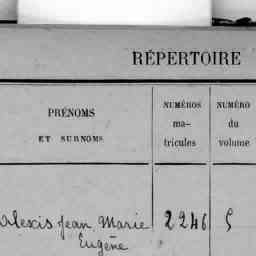 RÉPERTOIRE
PRÉNOMS
ET SURNOMS
NUMÉROS
ma-
tricules
NUMÉRO
du
volume
Alexis Jean Marie 2246 5
Eugène